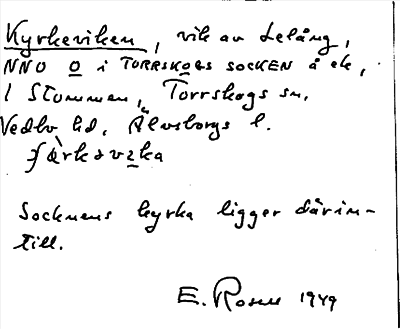 Kyrkeviken, vik av Lelång,
NNO O i TORRSKOGS SOCKEN å ek,
i Stommen, Torrskogs sn,
Vedbo hd, Älvsborgs l.
Socknens kyrka ligger därin-
till.
E. Rosell 1949